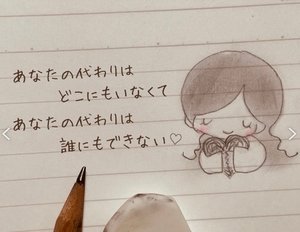 あなたの代わりは
どこにもいなくて
あなたの代わりは
誰にもできない♡